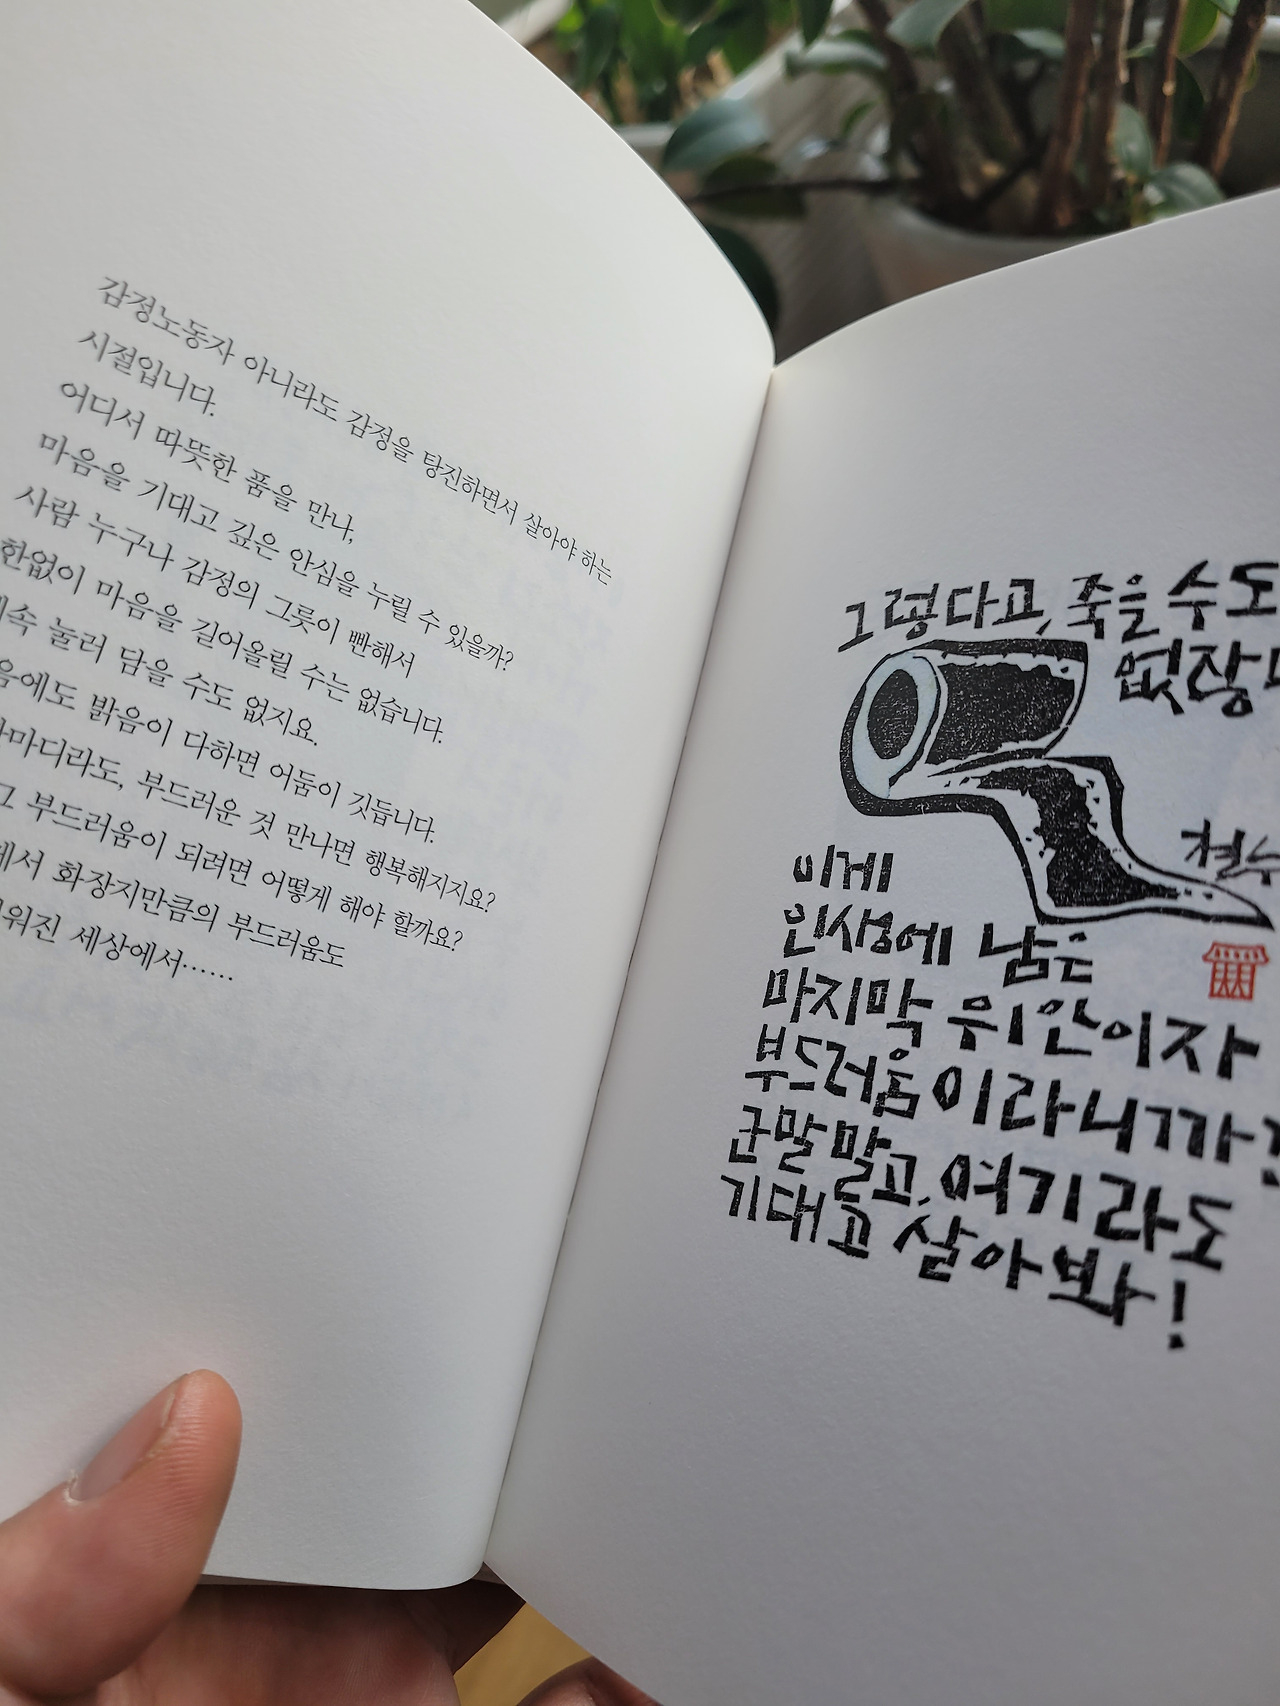 감정노동자 아니라도 감정을 탕진하면서 살아야 하는
시절입니다.
어디서 따뜻한 품을 만나,
마음을 기대고 깊은 안심을 누릴 수 있을까?
사람 누구나 감정의 그릇이 빤해서
한없이 마음을 길어올릴 수는 없습니다.
눌러 담을 수도 없지요.
밝음이 다하면 어둠이 깃듭니다.
부드러운 것 만나면 행복해지지요?
그 부드러움이 되려면 어떻게 해야 할까요?
화장지만큼의 부드러움도
세상에서……
그렇다고, 죽을 수도
철수
이게
인생에 남은
마지막 위안이자
부드러움이라니까
군말 말고, 여기라도
기대고 살아봐!